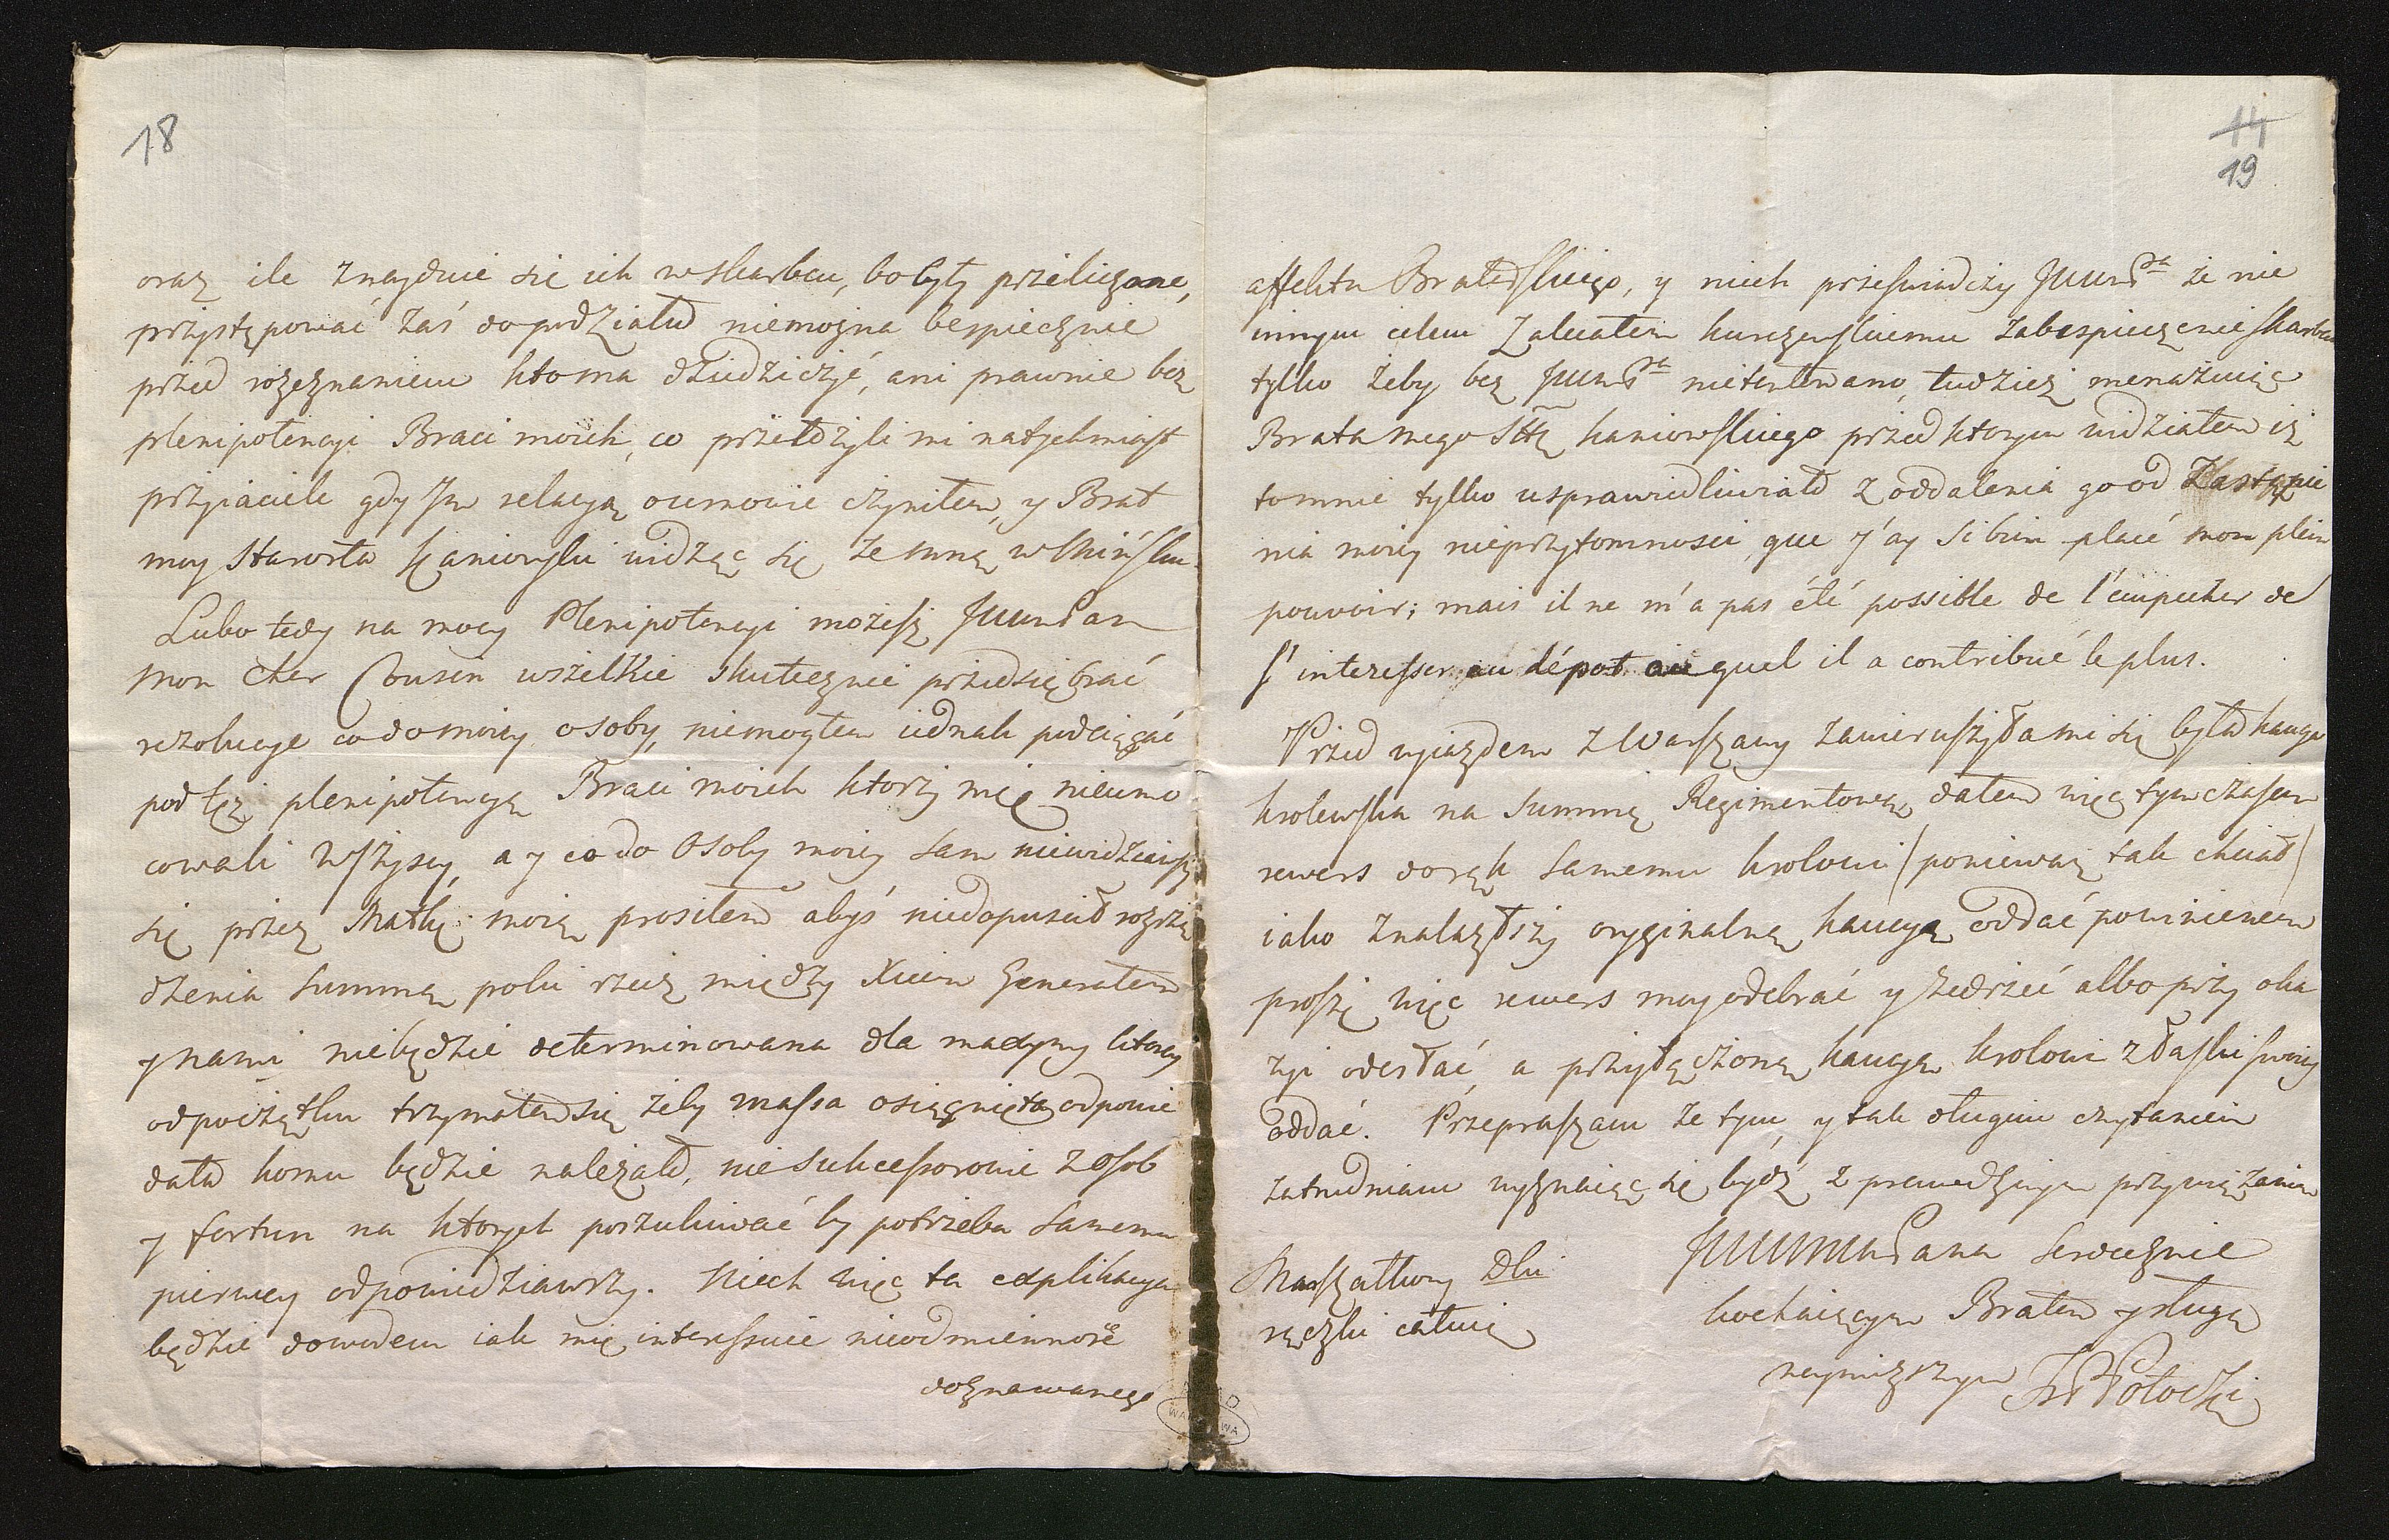 18
oraz ile znayduie się ich w skarbcu, bo były przeliczone,
przystępować zaś do podziału niemożna bespiecznie
przed rozeznaniem kto ma dziedziczyć, ani prawnie bez
plenipotencyi Braci moich, co przełożyli mi natychmiast
przyiaciele gdym relacyą o umowie czyniłem, y Brat
moy Starosta Kaniowski widząc się ze mną w Mińsku.
Lubo tedy na mocy Plenipotencyi możesz JWWPan
mon cher Cousin wszelkie skutecznie przedsiębrać
rezolucye co do moiey osoby, niemogłem iednak podciągać
pod tęż plenipotencyą Braci moich ktorzy mię nieumo
cowali wszyscy, a y co do Osoby moiey sam niewidziawszy
się przez Matkę moię prosiłem abyś niedopuścił rozrzą
dzenia summą poki rzecz między Xciem Generałem
y nami niebędzie determinowana dla maxymy ktorey
od początku trzymałem się żeby massa osiągnięta odpowie
dała komu będzie należało, nie sukcessorowie z osob
y fortun na ktorych poszukiwać by potrzeba samemu
pierwey odpowiedziawszy. Niech więc ta explikacya
będzie dowodem iak mię interessuie nieodmienność
doznawanego
14
19
affektu Braterskiego, y niech przeświadczy JWWPa że nie
innym celem zalecałem Kurczewskiemu zabespieczenie skarbcu
tylko żeby bez JWWPa nietentowano, tudzież menażuiąc
Brata mego Stę Kaniowskiego przed ktorym widziałem iż
to mnie tylko usprawiedliwiało z oddalenia go od Zastąpie
nia moiey nieprzytomności, que j'ay si bien placé mon plein
pouvoir; mais il ne m'a pas été possible de l'empecher de
s'interesser au dépot au quel il a contribué le plus.
Przed wyiazdem z Warszawy zawieruszyła mi się była kaucya
krolewska na Summę Regimentową, dałem więc tym czasem
rewers do rąk samemu krolowi (ponieważ tak chciał)
iako znalazłszy oryginalną kaucyą oddać powinienem
proszę więc rewers moy odebrać y zedrzeć albo przy oka
zyi odesłać, a przyłączoną kaucyą krolowi z łaski swoiey
oddać. Przepraszam że tym, y tak długim czytaniem
zatrudniam wyznaiąc się bydź z prawdziwym przywiązaniem
JWWMWPana serdecznie
kochaiącym Bratem y sługą
nayniższym Potocki
Marszałkowy Dki
rączki całuię
WARSZAWA